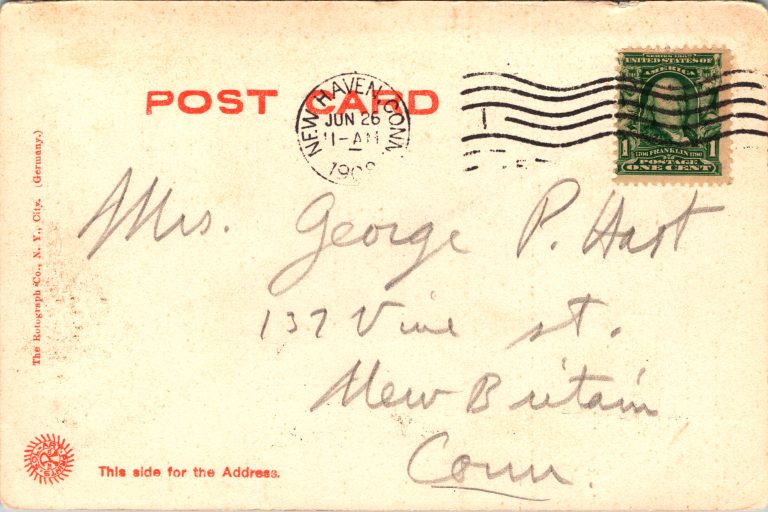 SERIES 1902
UNITED STATES OF
AMERICA
POST CARD
NEW HAVEN, CONN.
JUN 26
11-AM
1908
1706 FRANKLIN 1790
1 POSTAGE 1
ONE CENT
The Rotograph Co., N. Y., City. (Germany.)
Mrs. George P. Hart
137 Vine st.
New Britain
Conn.
This side for the Address.